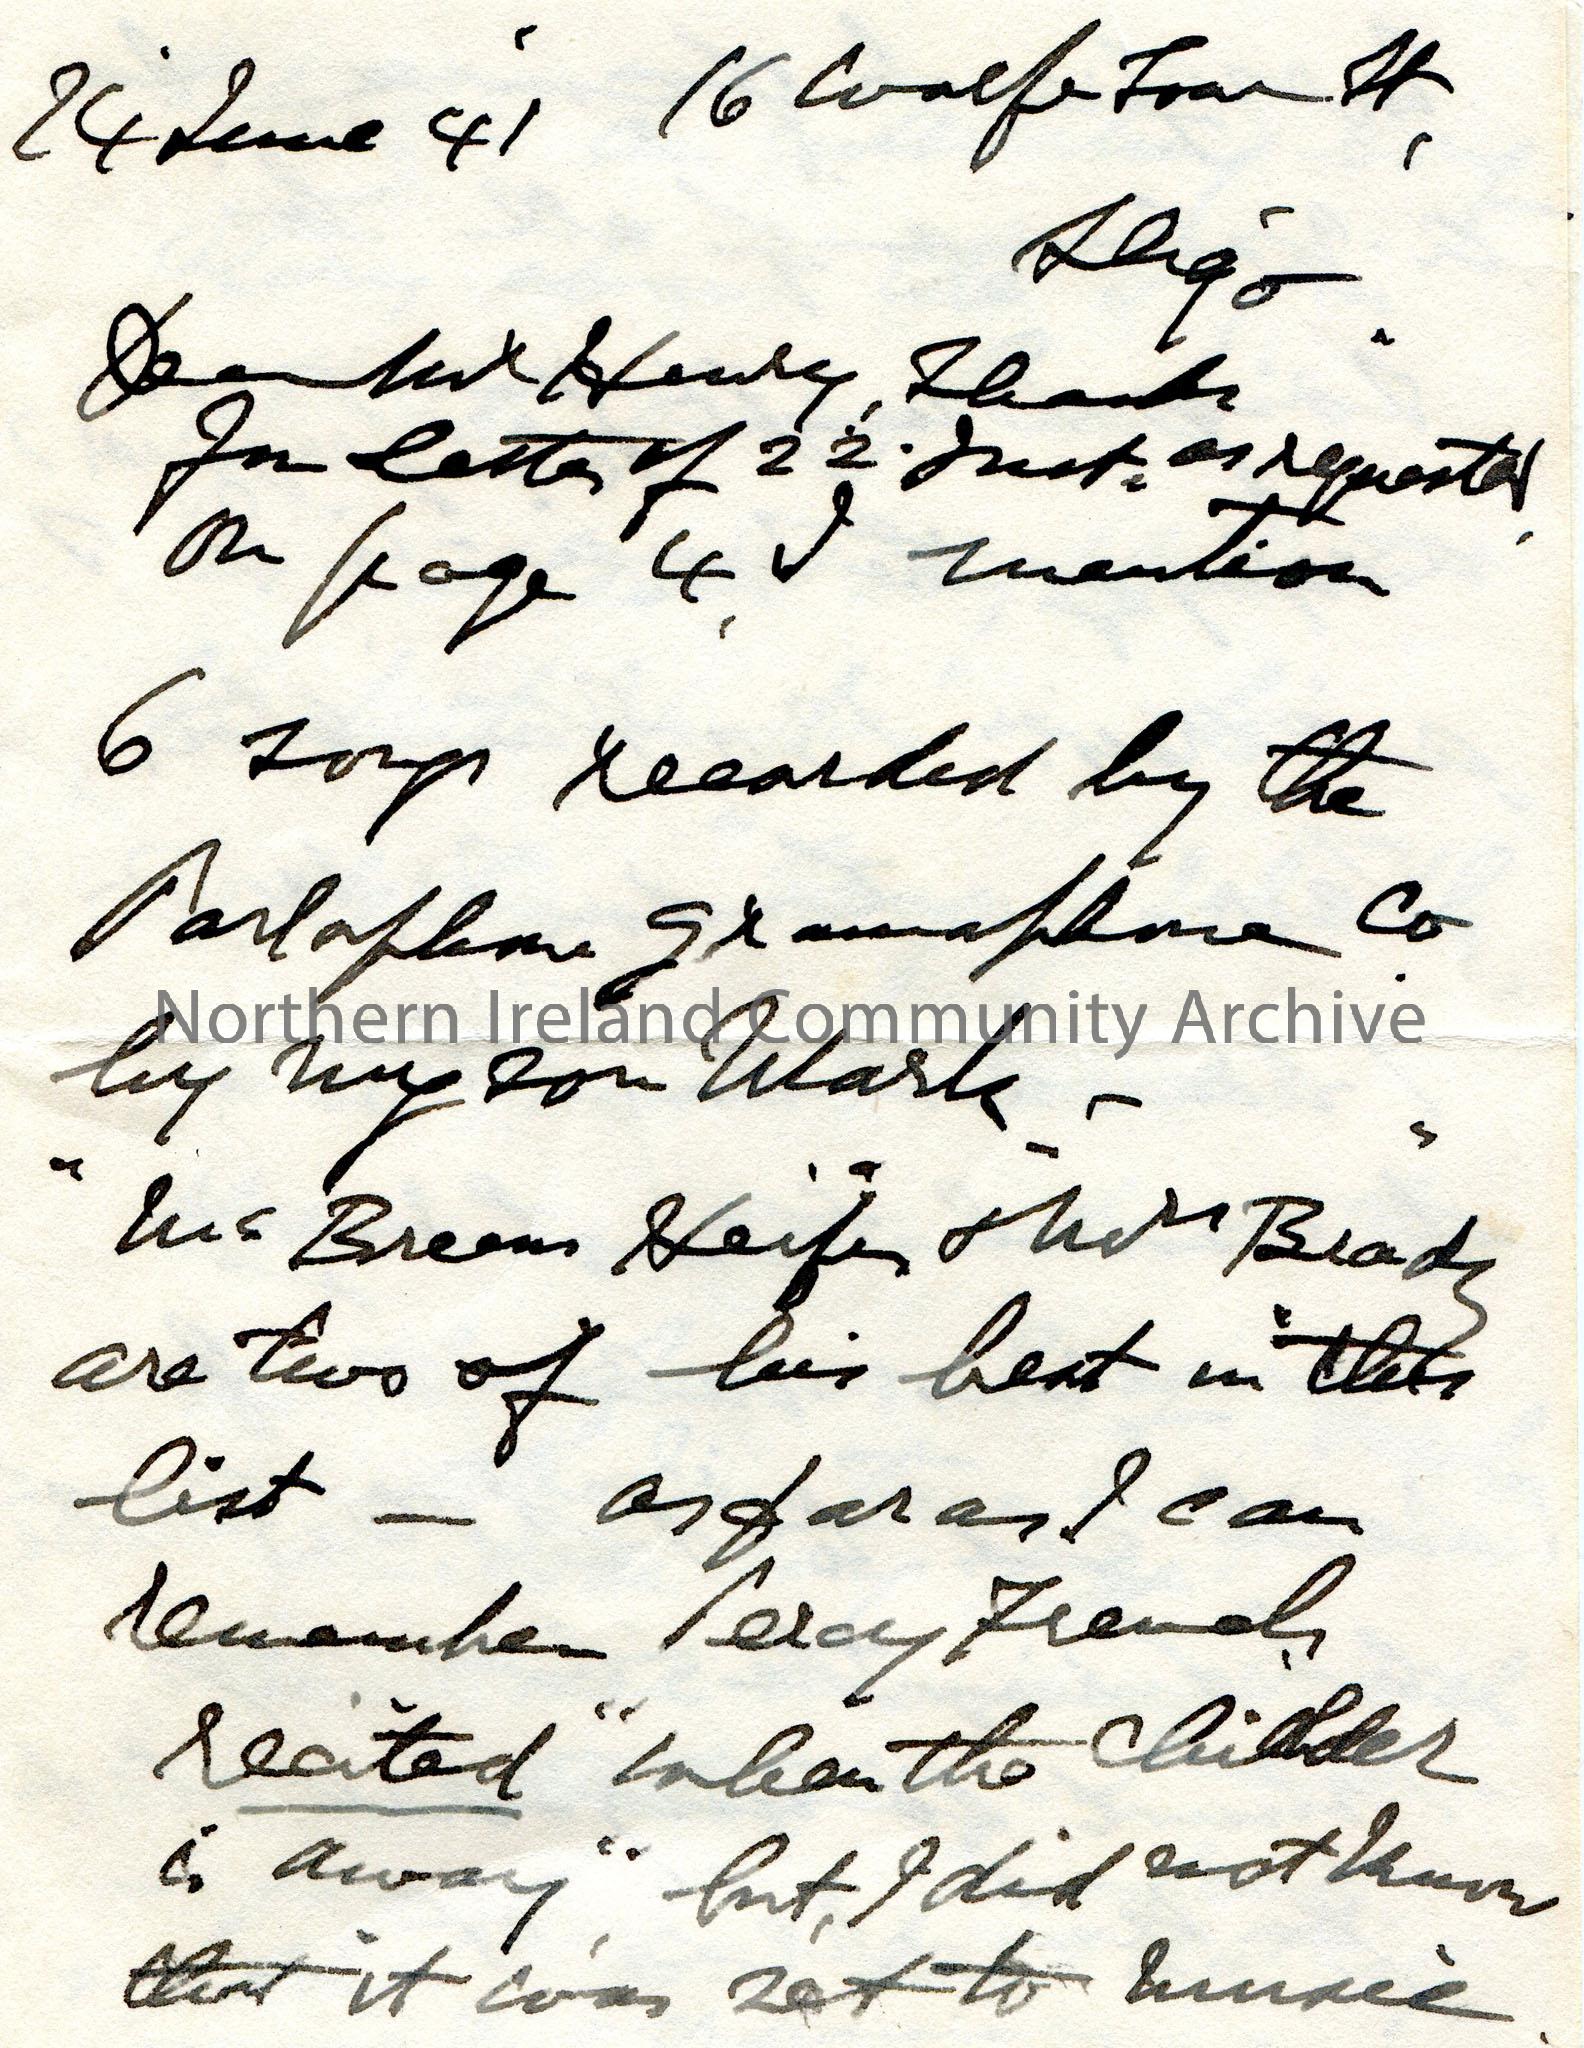 24 June 41 16 Wolfe Tone St,
Sligo
Dear Mr Henry, Thanks
for letter of 22. Inst. as requested,
on page 4, I mention
6 songs recorded by the
Parlophone Gramophone Co.
Northern Ireland Community Archive
by my son Mark, -
"McBreens Heifer" & "Mrs Brady"
are two of his best in this
list — as far as I can
remember Percy French,
recited "when the childer
is away" but, I did not know
that it was set to music.